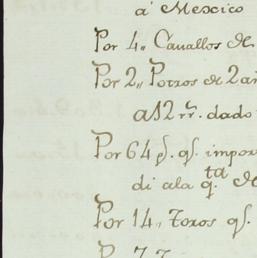 a Mexico
Por 4,, Cauallos de
Por 2,, Potros de 2 añ
a 12 rr. dado
Por 64 p. qs. impor
di ala q.ta de
Por 14,, Toros qs.